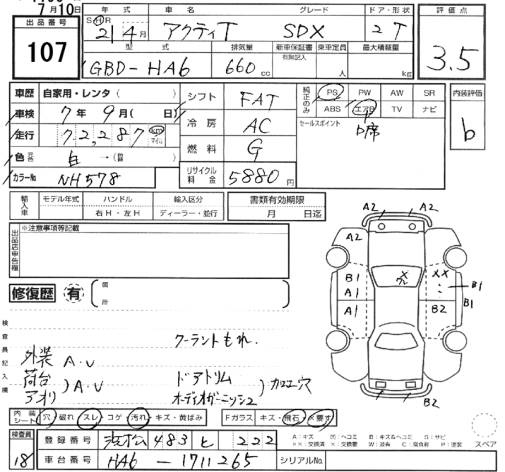 7月10日
出品番号
107
年式 車名 グレード ドア・形状
SHR 21年4月 アクティT SDX 2T
型式 排気量 新車保証書 有限記入 乗車定員 最大積載量
GBD-HA6 660cc 人 kg
評価点
3.5
車歴 自家用・レンタ( )
車検 7年9月( 日)
走行 72,287 km マイル
色 白 →( )
カラーNo NH578
シフト FAT
冷房 AC
燃料 G
リサイクル料金 5880円
純正のみ PS PW AW SR
ABS エアB TV ナビ
セールスポイント
内装評価
b
輸入車 モデル年式 ハンドル 輸入区分
右H・左H ディーラー・並行
書類有効期限
月 日迄
出品店申告欄
※注意事項等記載
修復歴 有
箇所
検査員記入欄
クーラントもれ.
外装 A.U
荷台
アオリ ) A.U
ドアトリム
オーディオガーニッシュ ) カロエ穴
A2 A2
A2
B1
A1 A1
XX
B1
B1
B2
A2
B2
内装シート 穴 破れ スレ コゲ 汚れ キズ・黄ばみ
Fガラス キズ・飛石
スペア
検査員
18
登録番号 浜松 483 と 222
車台番号 HA6-1711265
シリアルNo.